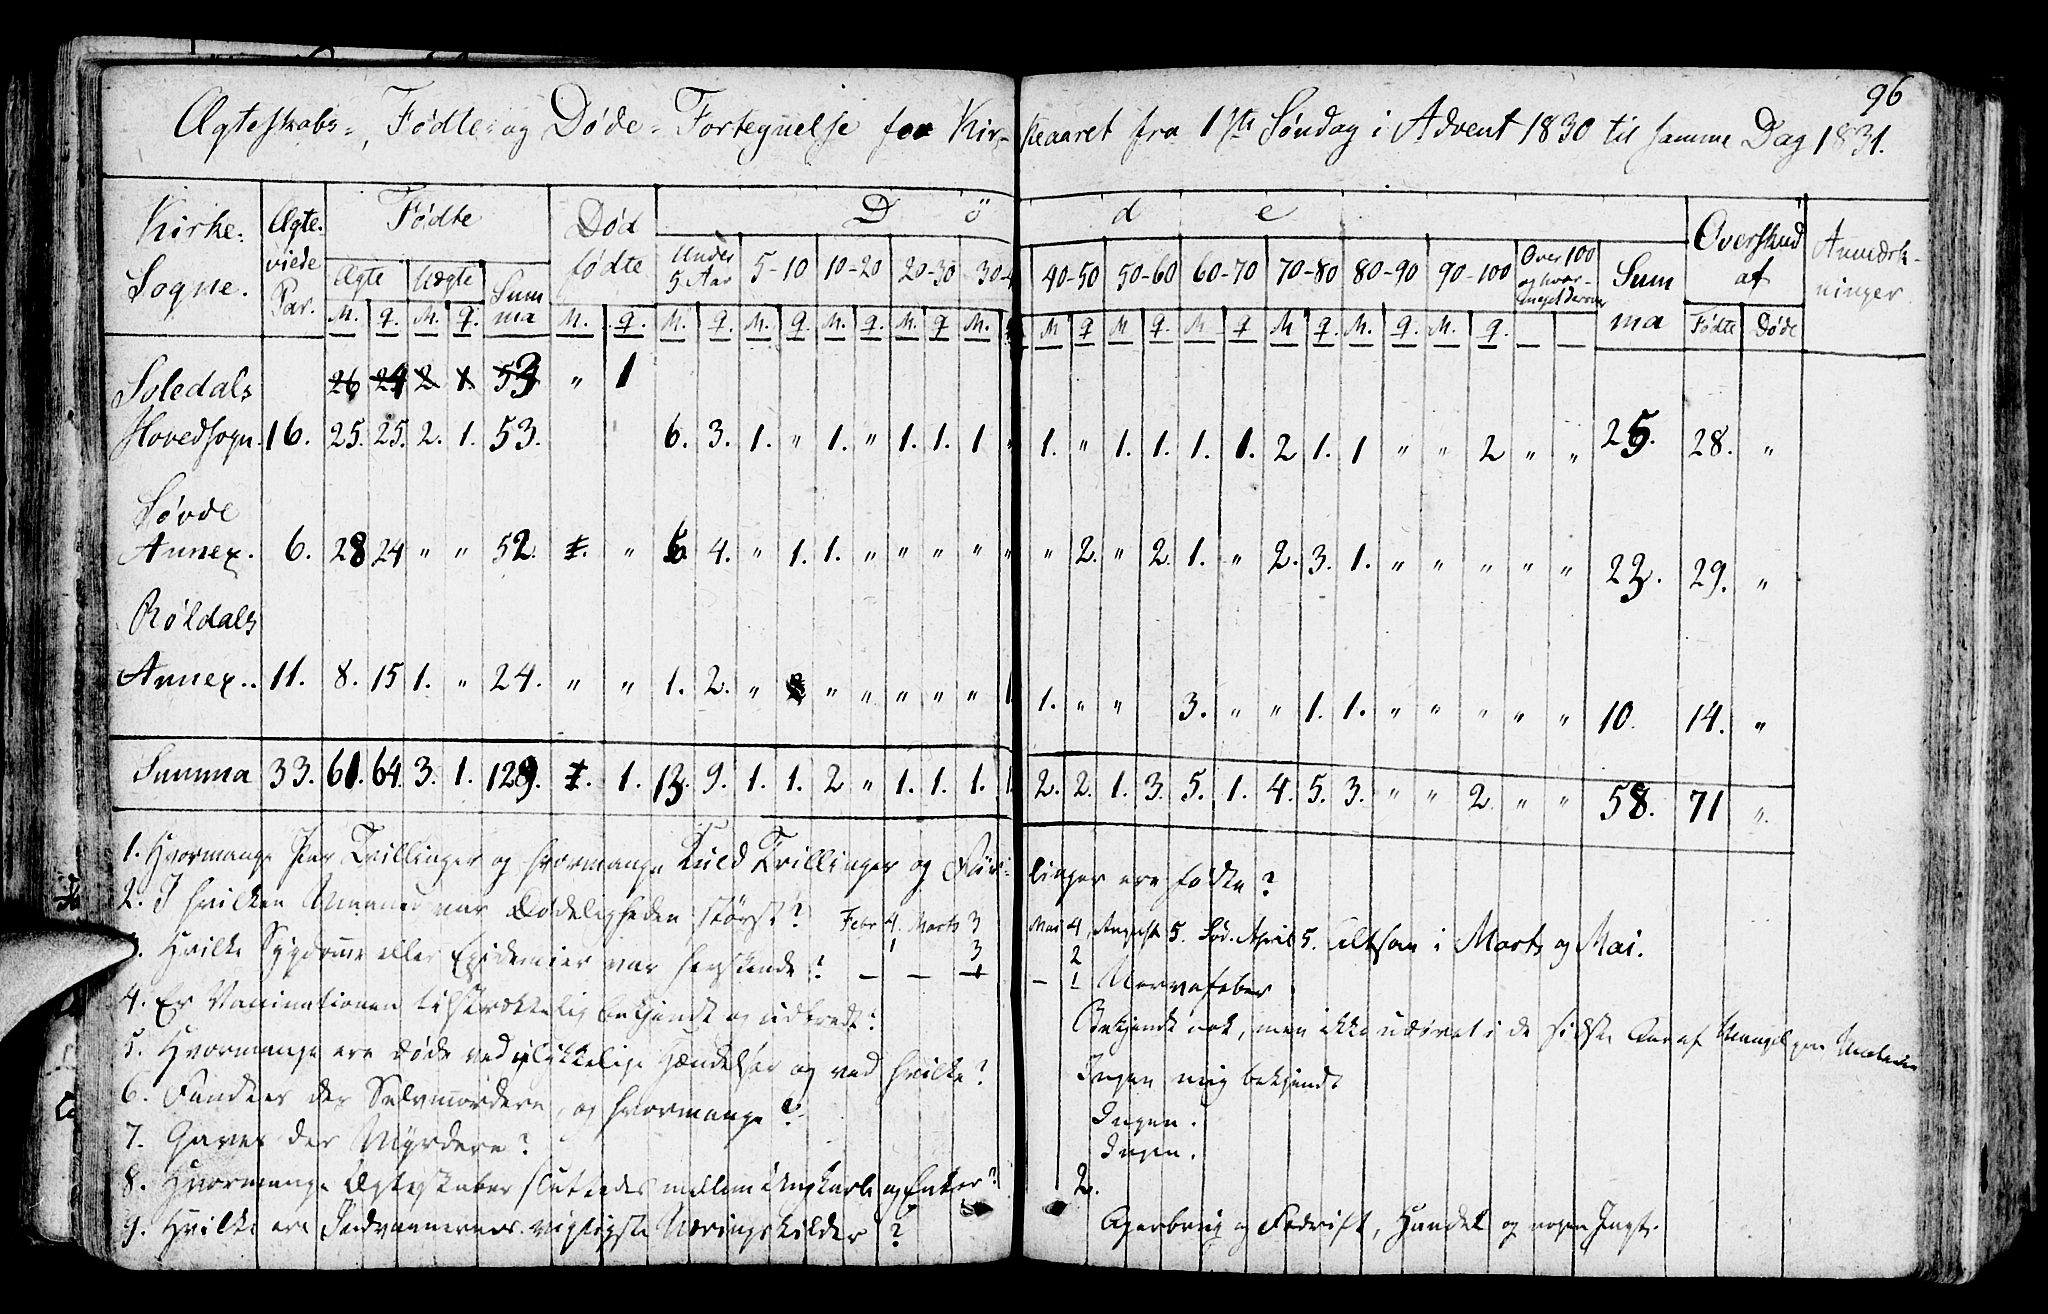 96
Ægteskabs-, Fødte- og Døde-Fortegnelse for Kirkeaaret fra 1ste Søndag i Advent 1830 til samme Dag 1831.
Kirke- Sogne. Ægteviede Par. Fødte Død fødte D ö d e Overskud af Anmærkninger
Ægte Uægte Summa Under 5 Aar 5-10 10-20 20-30 30-4 40-50 50-60 60-70 70-80 80-90 90-100 Over 100 og hvor Summa Fødte Døde
M. Q. M. Q. M. Q. M. Q. M. Q. M. Q. M. Q. M. M Q M Q. M Q M Q. M. Q. M. Q.
Soledals 26 24 2. 1. 53 " 1
Hovedsogn. 16. 25. 25. 2. 1. 53. 6. 3. 1. " 1. " 1. 1. 1 " 1. " 1. 1. 1. 1. 2 1. 1 " " 2 " " 25. 28. "
Søvde
Annex. 6. 28 24 " " 52. 1. " 6. 4. " 1. 1. " " " " " " 2. " 2. 1. " 2. 3. 1. " " " " " 23. 29. "
Røldals
Annex.. 11. 8. 15 1. " 24. " " 1. 2. " " " " " " " 1 1. " " 3. " " 1. 1. " " " " " 10. 14. "
Summa 33. 61. 64. 3. 1. 129. 1. 1. 13. 9. 1. 1. 2 " 1. 1. 1. 1. 2. 2. 1. 3. 5. 1. 4. 5. 3. " " 2. " " 58. 71 ".
1. Hvormange Par Tvillinger og hvormange Kuld Trillinger og Fiirlinger ere fødte?
2. I hvilken Maaned var Dødeligheden størst? Febr 4. Marts 3 Mai 4, August 5. Sød. April 5. altsaa i Marts og Mai.
1 3 2
3. Hvilke Sygdomme eller Epidemier var herskende? — — — — 1 Nervefeber
4. Er Vaccinationen tilstrækkelig bekjendt og udbredt? Bekjendt nok, men ikke udøvet i de sidste Aar af Mangel paa
5. Hvormange ere døde ved ulykkelige Hændelser og ved hvilke? Ingen mig bekjendt
6. Fandtes der Selvmordere, og hvormange? Ingen.
7. Gaves der Myrdere? Ingen.
8. Hvormange Ægteskaber sluttedes mellem Ungkarle og Enker? 2.
9. Hvilke ere Indvaanernes vigtigste Næringskilder? Agerbrug og Fædrift, Handel og